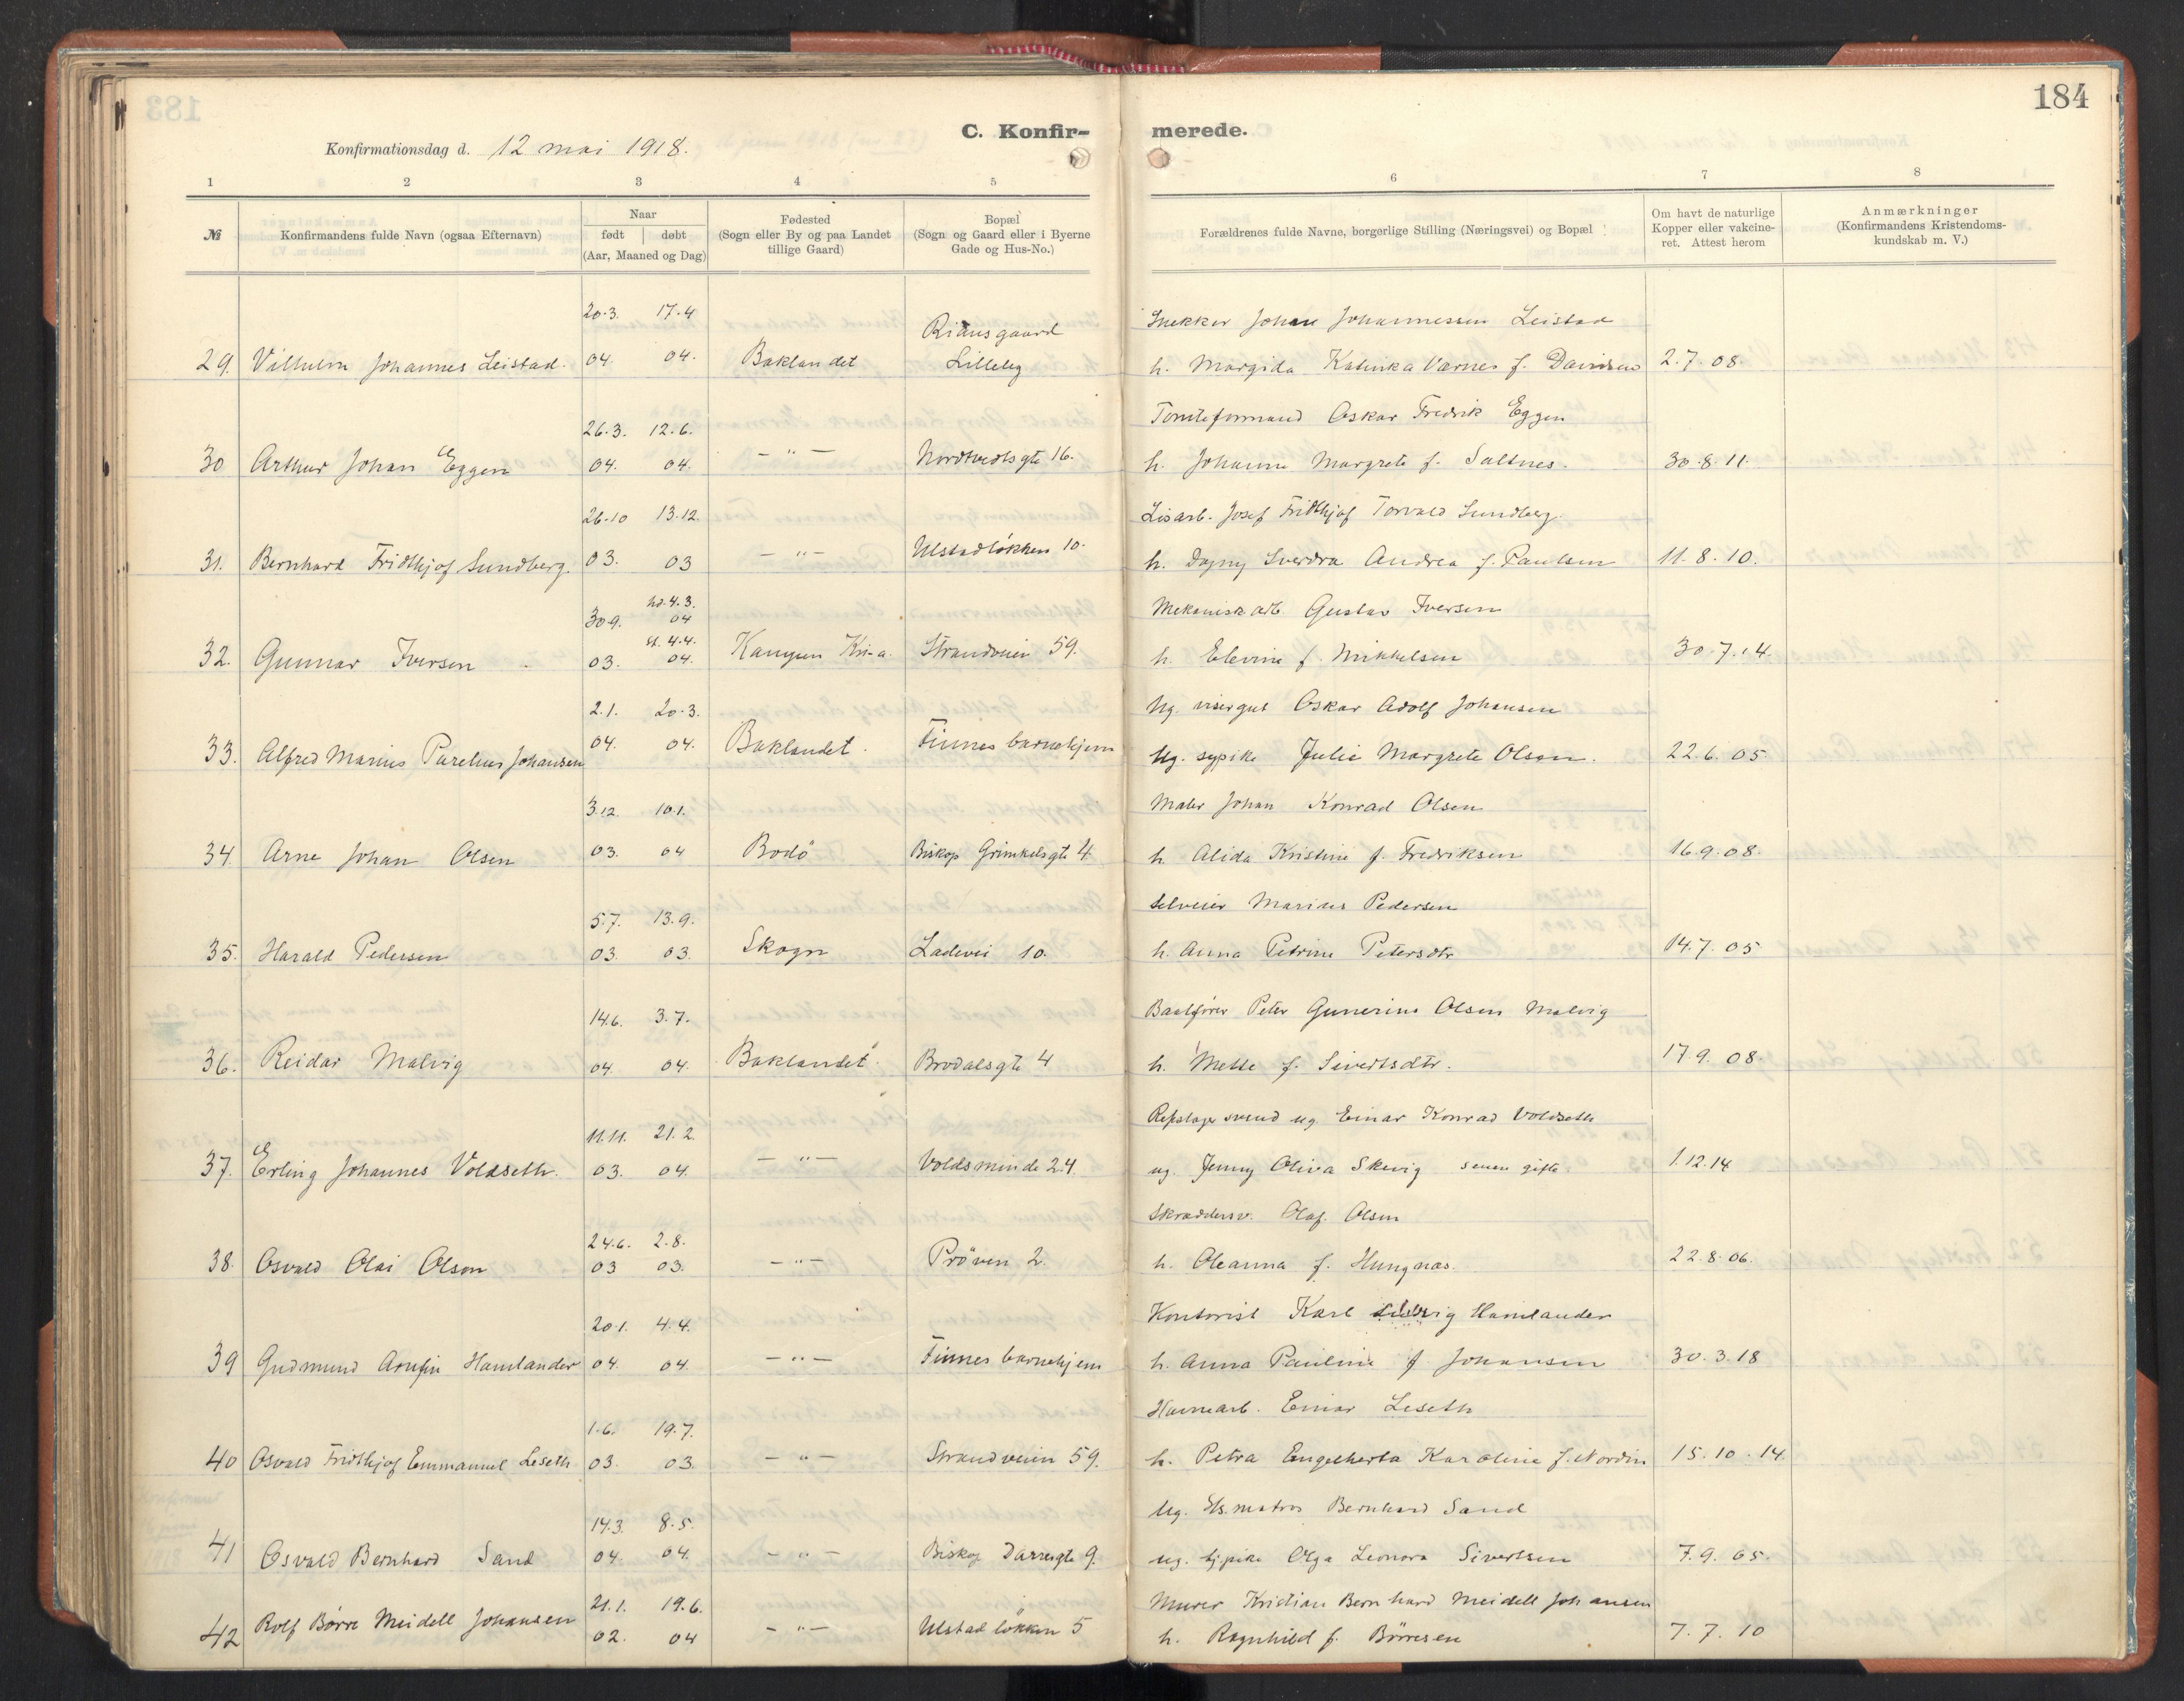 184
C. Konfir- merede.
Konfirmationsdag d. 12 mai 1918.
1 2 3 4 5 6 7 8
№
Konfirmandens fulde Navn (ogsaa Efternavn)
Naar
født døbt
(Aar, Maaned og Dag)
Fødested
(Sogn eller By og paa Landet
tillige Gaard)
Bopæl
(Sogn og Gaard eller i Byerne
Gade og Hus-No.)
Forældrenes fulde Navne, borgerlige Stilling (Næringsvei) og Bopæl
Om havt de naturlige
Kopper eller vakcine-
ret. Attest herom
Anmærkninger
(Konfirmandens Kristendoms-
kundskab m. V.)
20.3. 17.4 Riansgaard Snekker Johan Johannessen Leistad
29. Vilhelm Johannes Leistad. 04. 04. Baklandet Lilleby h. Margida Katinka Værnes f. Davidsen 2.7.08.
26.3. 12.6. Tomteformand Oskar Fredrik Eggen
30 Arthur Johan Eggen 04. 04. — " — Nordtvedtsgte 16. h. Johanna Margrete f. Saltnes. 30.8.11.
26.10 13.12. Lisarb. Josef Fridthjof Torvald Sundberg.
31. Bernhard Fridthjof Sundberg. 03. 03 — " — Ulstadløkken 10. h. Dagny Sverdra Andrea f. Paulsen 11.8.10.
30.9. hd. 4.3. 04 Mekanisk arb. Gustav Iversen
32. Gunnar Iversen 03. st. 4.4. 04. Kampen Kr-a. Strandveien 59. h. Elevine f. Mikkelsen 30.7.14.
2.1. 20.3. Ug. visergut Oskar Adolf Johansen
33. Alfred Marius Parelius Johansen 04. 04. Baklandet. Finnes barnehjem Ug. sypike Julie Margrete Olsen. 22.6.05.
3.12. 10.1. Maler Johan Konrad Olsen
34. Arne Johan Olsen 03. 04 Bodö Biskop Grimkelsgte 4. h. Alida Kristine f. Fredriksen 16.9.08.
5.7. 13.9. Selveier Marius Pedersen
35. Harald Pedersen 03. 03. Skogn Ladevei 10. h. Anna Petrine Petersdtr 14.7.05
14.6. 3.7. Baatfører Peter Gunerius Olsen Malvig
36. Reidar Malvig 04. 04. Baklandet. Brodalsgte 4 h. Mette f. Sivertsdtr. 17.9.08.
11.11. 21.2. Repslager svend ug. Einar Konrad Voldseth
37. Erling Johannes Voldseth. 03. 04. — " — Voldsminde 24. ug. Jenny Oliva Skevig senere gifte 1.12.14
24.6. 2.8. Skræddersv. Olaf Olsen
38. Osvald Olai Olsen 03 03. — " — Prøven 2. h. Oleanna f. Hungnæs. 22.8.06.
20.1. 4.4. Kontorist Karl Ludvig Hamlander
39 Gudmund Arnfin Hamlander 04. 04. — " — Finnes barnehjem h. Anna Pauline f Johansen 30.3.18
1.6. 19.7. Havnearb. Einar Leseth
40 Osvald Fridthjof Emmanuel Leseth 03. 03. — " — Strandveien 59. h. Petra Engelherta Karoline f. Nordin 15.10.14.
14.3. 8.5. Ug. matros Bernhard Sand
41 Osvald Bernhard Sand 04. 04. — " — Biskop Darresgte 9. ug. tjpike Olga Leonora Sivertsen 7.9.05.
21.1. 19.6. Murer Kristian Bernhard Meidell Johansen
42 Rolf Børre Meidell Johansen 02. 04 — " — Ulstadløkken 5 h. Ragnhild f. Børresen 7.7.10